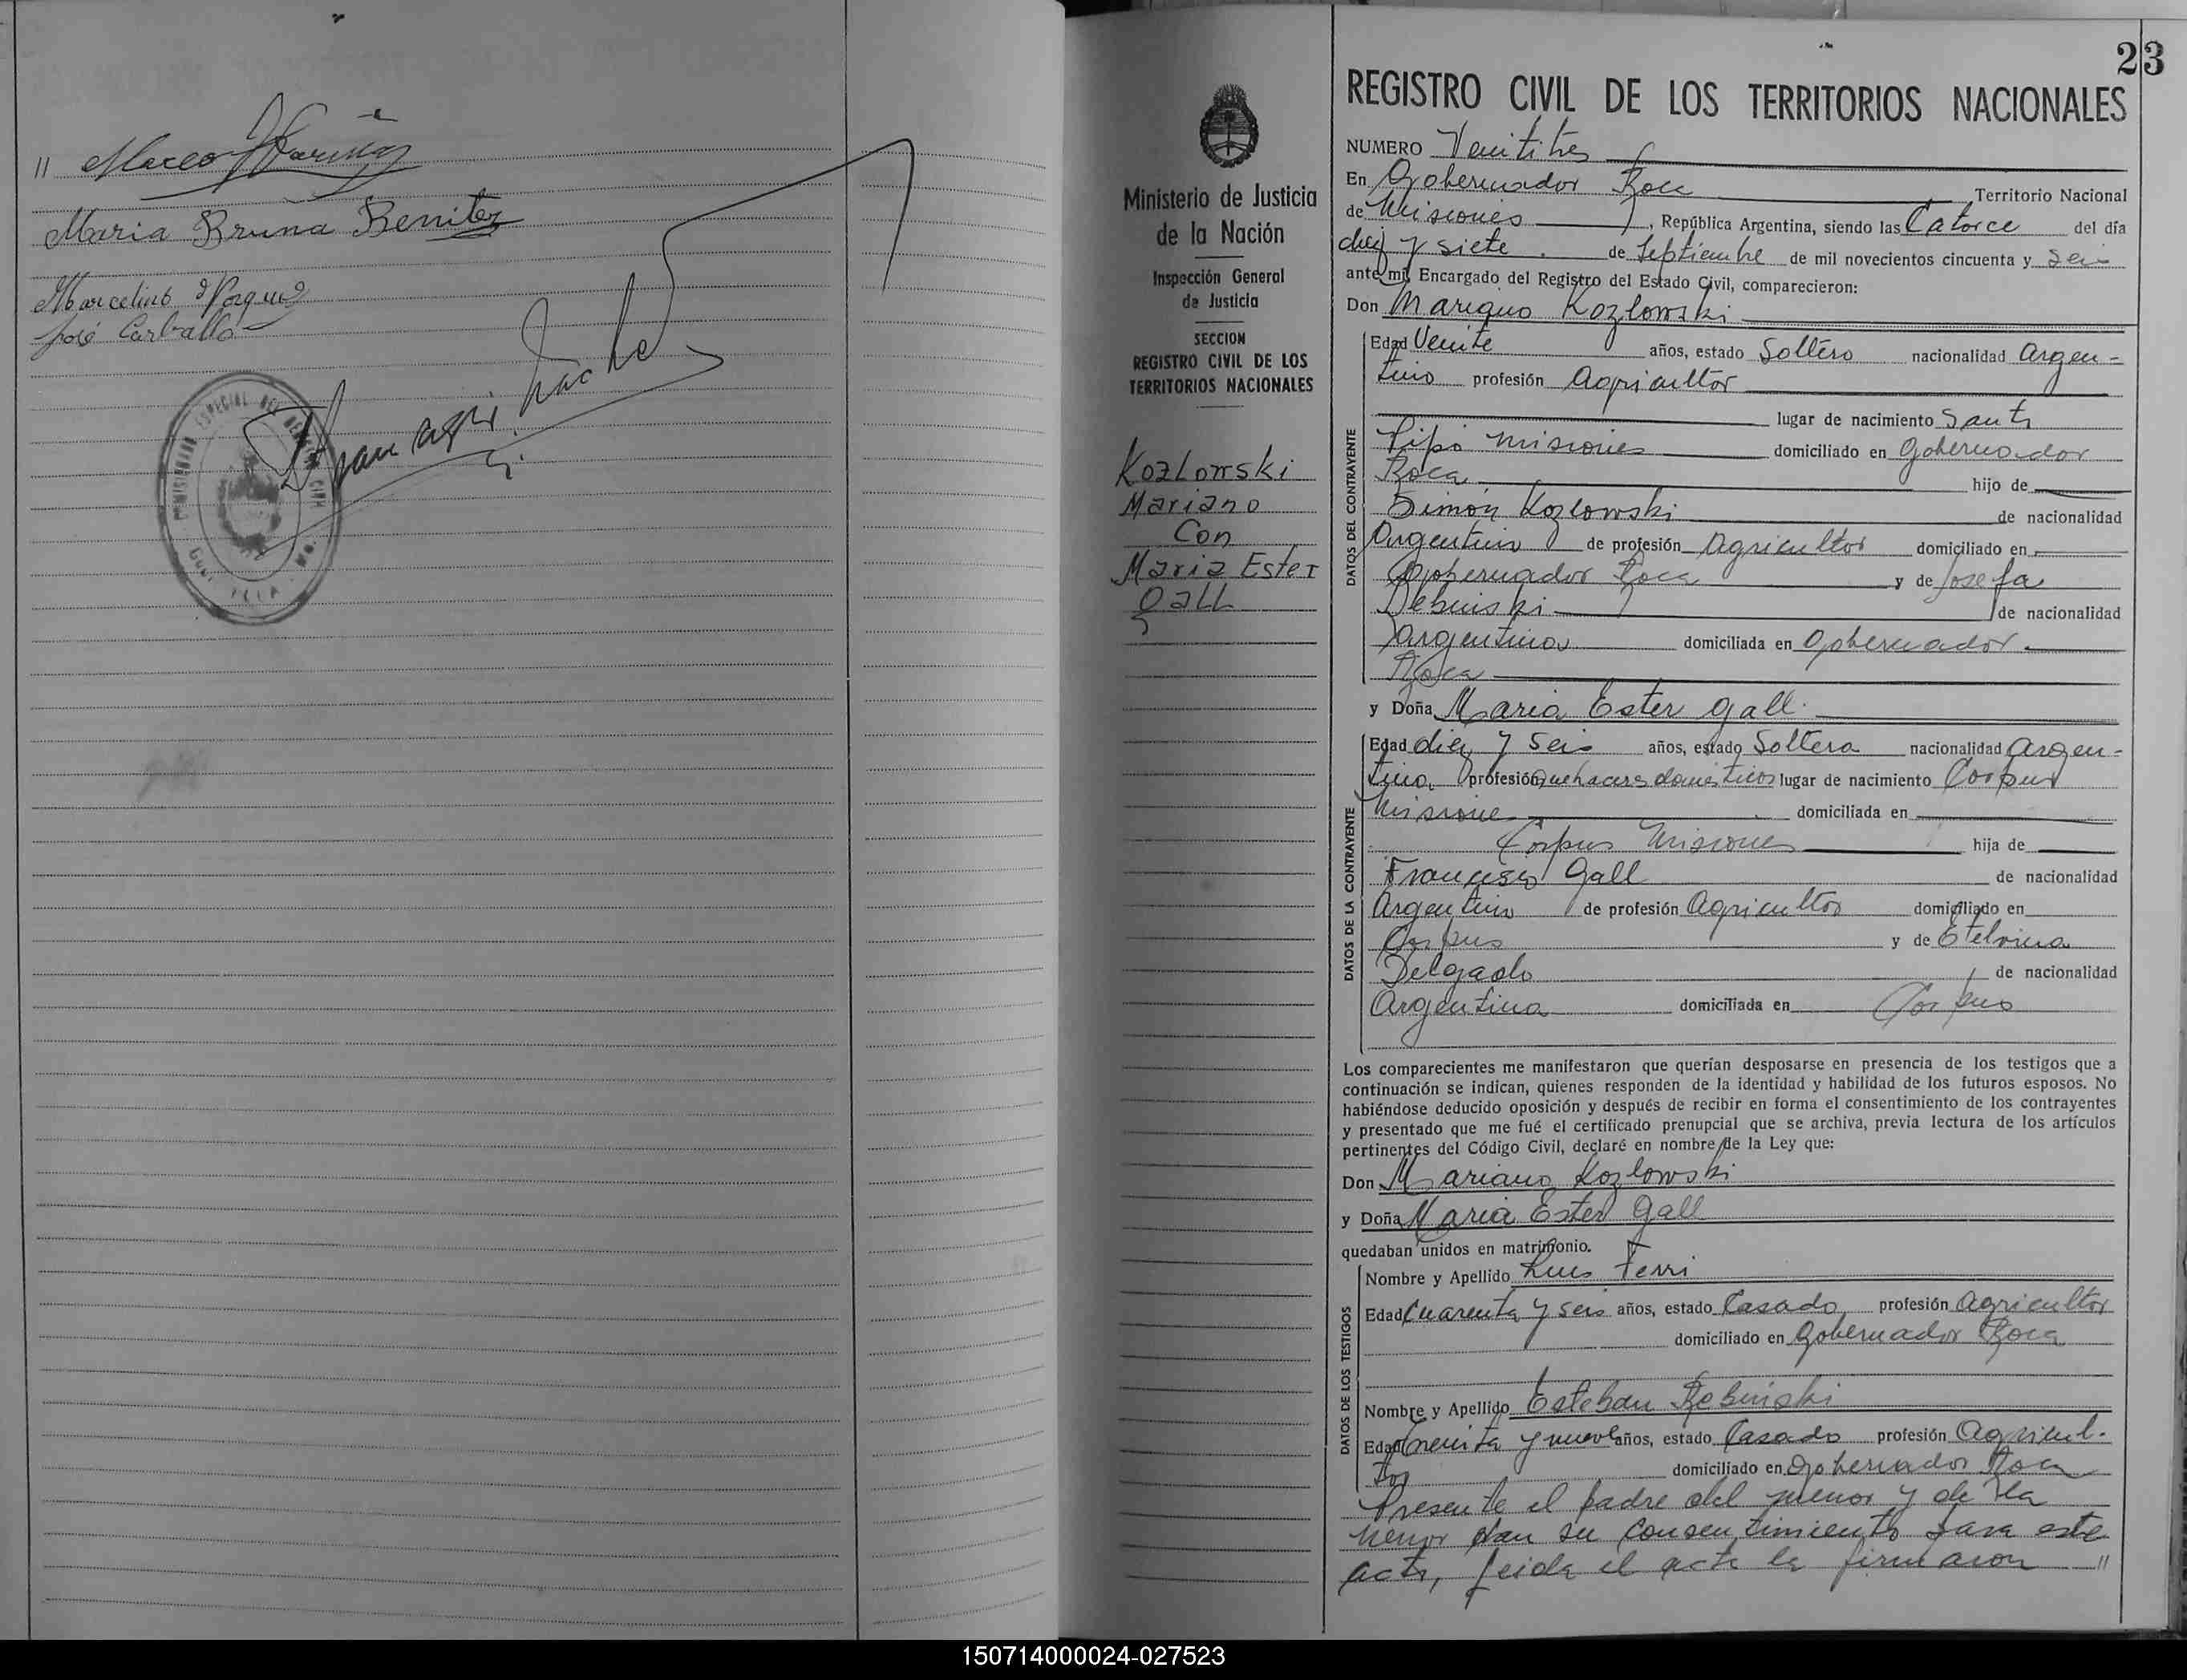 Maria Bruna Benitez
Marcelino
José Carballo
23
REGISTRO CIVIL DE LOS TERRITORIOS NACIONALES
Ministerio de Justicia
de la Nación
Inspección General
de Justicia
SECCION
REGISTRO CIVIL DE LOS
TERRITORIOS NACIONALES
Kozlowski
Mariano
Con
Maria Ester
Gall
NUMERO Veintitres
En Gobernador Roca Territorio Nacional
de Misiones, República Argentina, siendo las Catorce del día
diez y siete de Septiembre de mil novecientos cincuenta y Seis
ante mí, Encargado del Registro del Estado Civil, comparecieron:
Don Mariano Kozlowski
DATOS DEL CONTRAYENTE
Edad Veinte años, estado Soltero nacionalidad Argen-
tino profesión Agricultor
lugar de nacimiento Santo
Pipó Misiones domiciliado en Gobernador
Roca hijo de
Simón Kozlowski de nacionalidad
Argentino de profesión Agricultor domiciliado en
Gobernador Roca y de Josefa
de nacionalidad
Argentina domiciliada en Gobernador
Roca
y Doña Maria Ester Gall
DATOS DE LA CONTRAYENTE
Edad diez y Seis años, estado Soltera nacionalidad Argen-
tina profesión quehaceres domésticos lugar de nacimiento Corpus
Misiones domiciliada en
Corpus Misiones hija de
Francisco Gall de nacionalidad
Argentino de profesión Agricultor domiciliado en
Corpus y de Etelvina
Delgado de nacionalidad
Argentina domiciliada en Corpus
Los comparecientes me manifestaron que querían desposarse en presencia de los testigos que a
continuación se indican, quienes responden de la identidad y habilidad de los futuros esposos. No
habiéndose deducido oposición y después de recibir en forma el consentimiento de los contrayentes
y presentado que me fué el certificado prenupcial que se archiva, previa lectura de los artículos
pertinentes del Código Civil, declaré en nombre de la Ley que:
Don Mariano Kozlowski
y Doña Maria Ester Gall
quedaban unidos en matrimonio.
DATOS DE LOS TESTIGOS
Nombre y Apellido Luis Ferri
Edad Cuarenta y seis años, estado Casado profesión Agricultor
domiciliado en Gobernador Roca
Nombre y Apellido Esteban
Edad treinta y nueve años, estado Casado profesión Agricul-
tor domiciliado en Gobernador Roca
Presente el padre del menor y de la
menor dan su consentimiento para este
acto, leida el acta la firmaron //
150714000024-027523